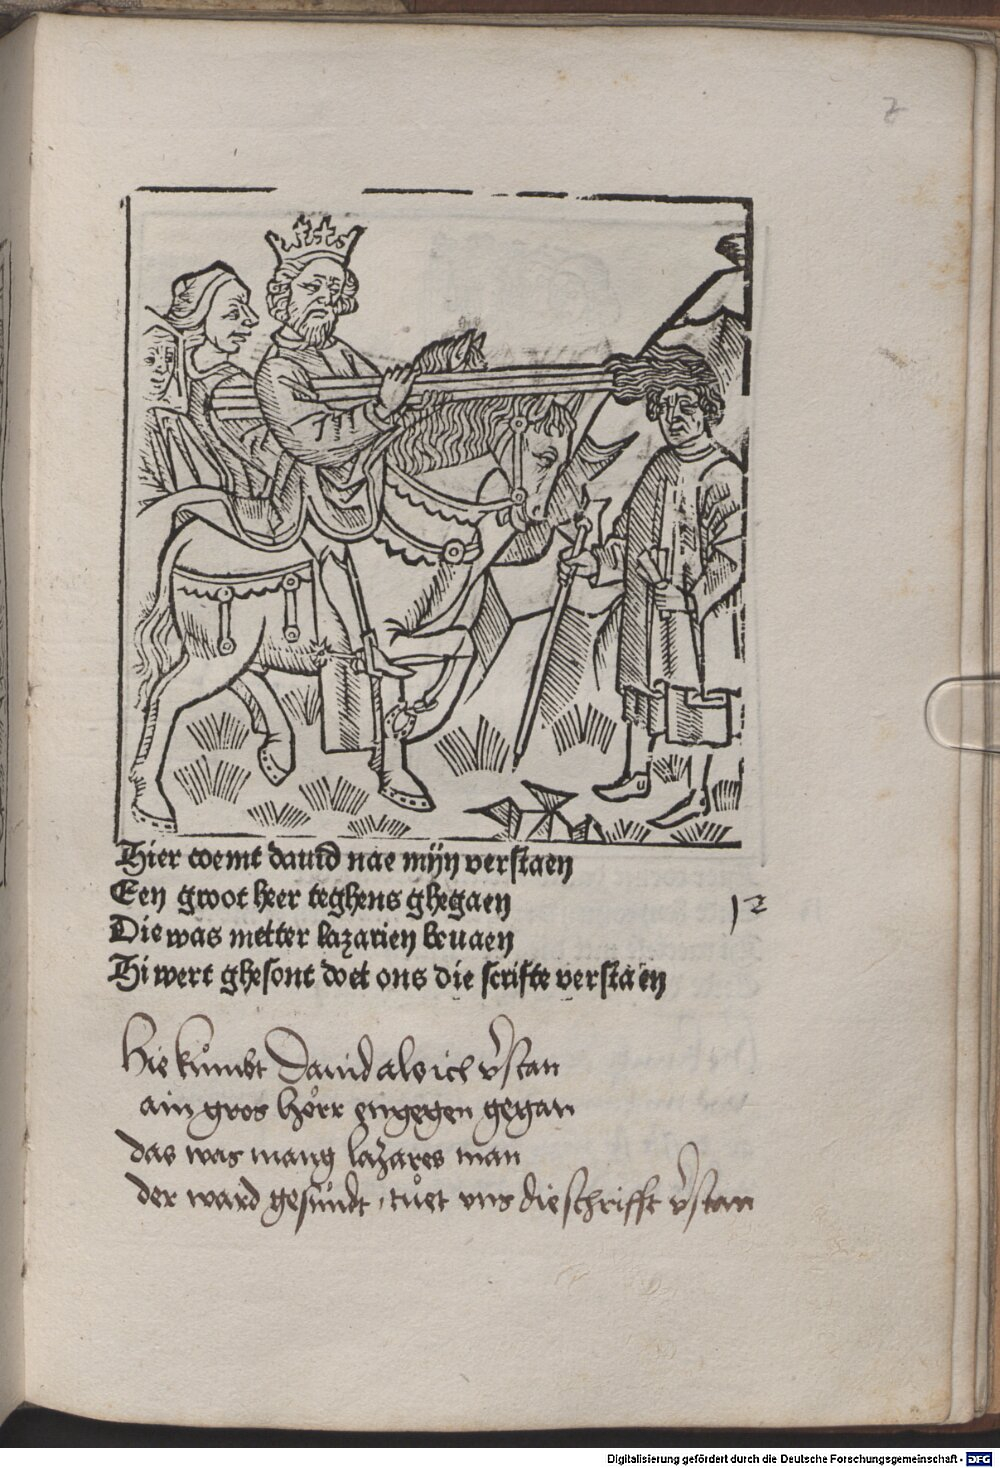 z
Hier coemt dauid nae mijn verstaen
Een groot heer teghens ghegaen
Die was metter lazarien beuaen
Hi wert ghesont doet ons die scrifte verstaen
12
Hie kůmbt Dauid als ich v̄stan
ain gros hőrr engegen gegan
das was mang lazares man
der ward gesundt, tůet vns die schrifft v̄stan
Digitalisierung gefördert durch die Deutsche Forschungsgemeinschaft - DFG